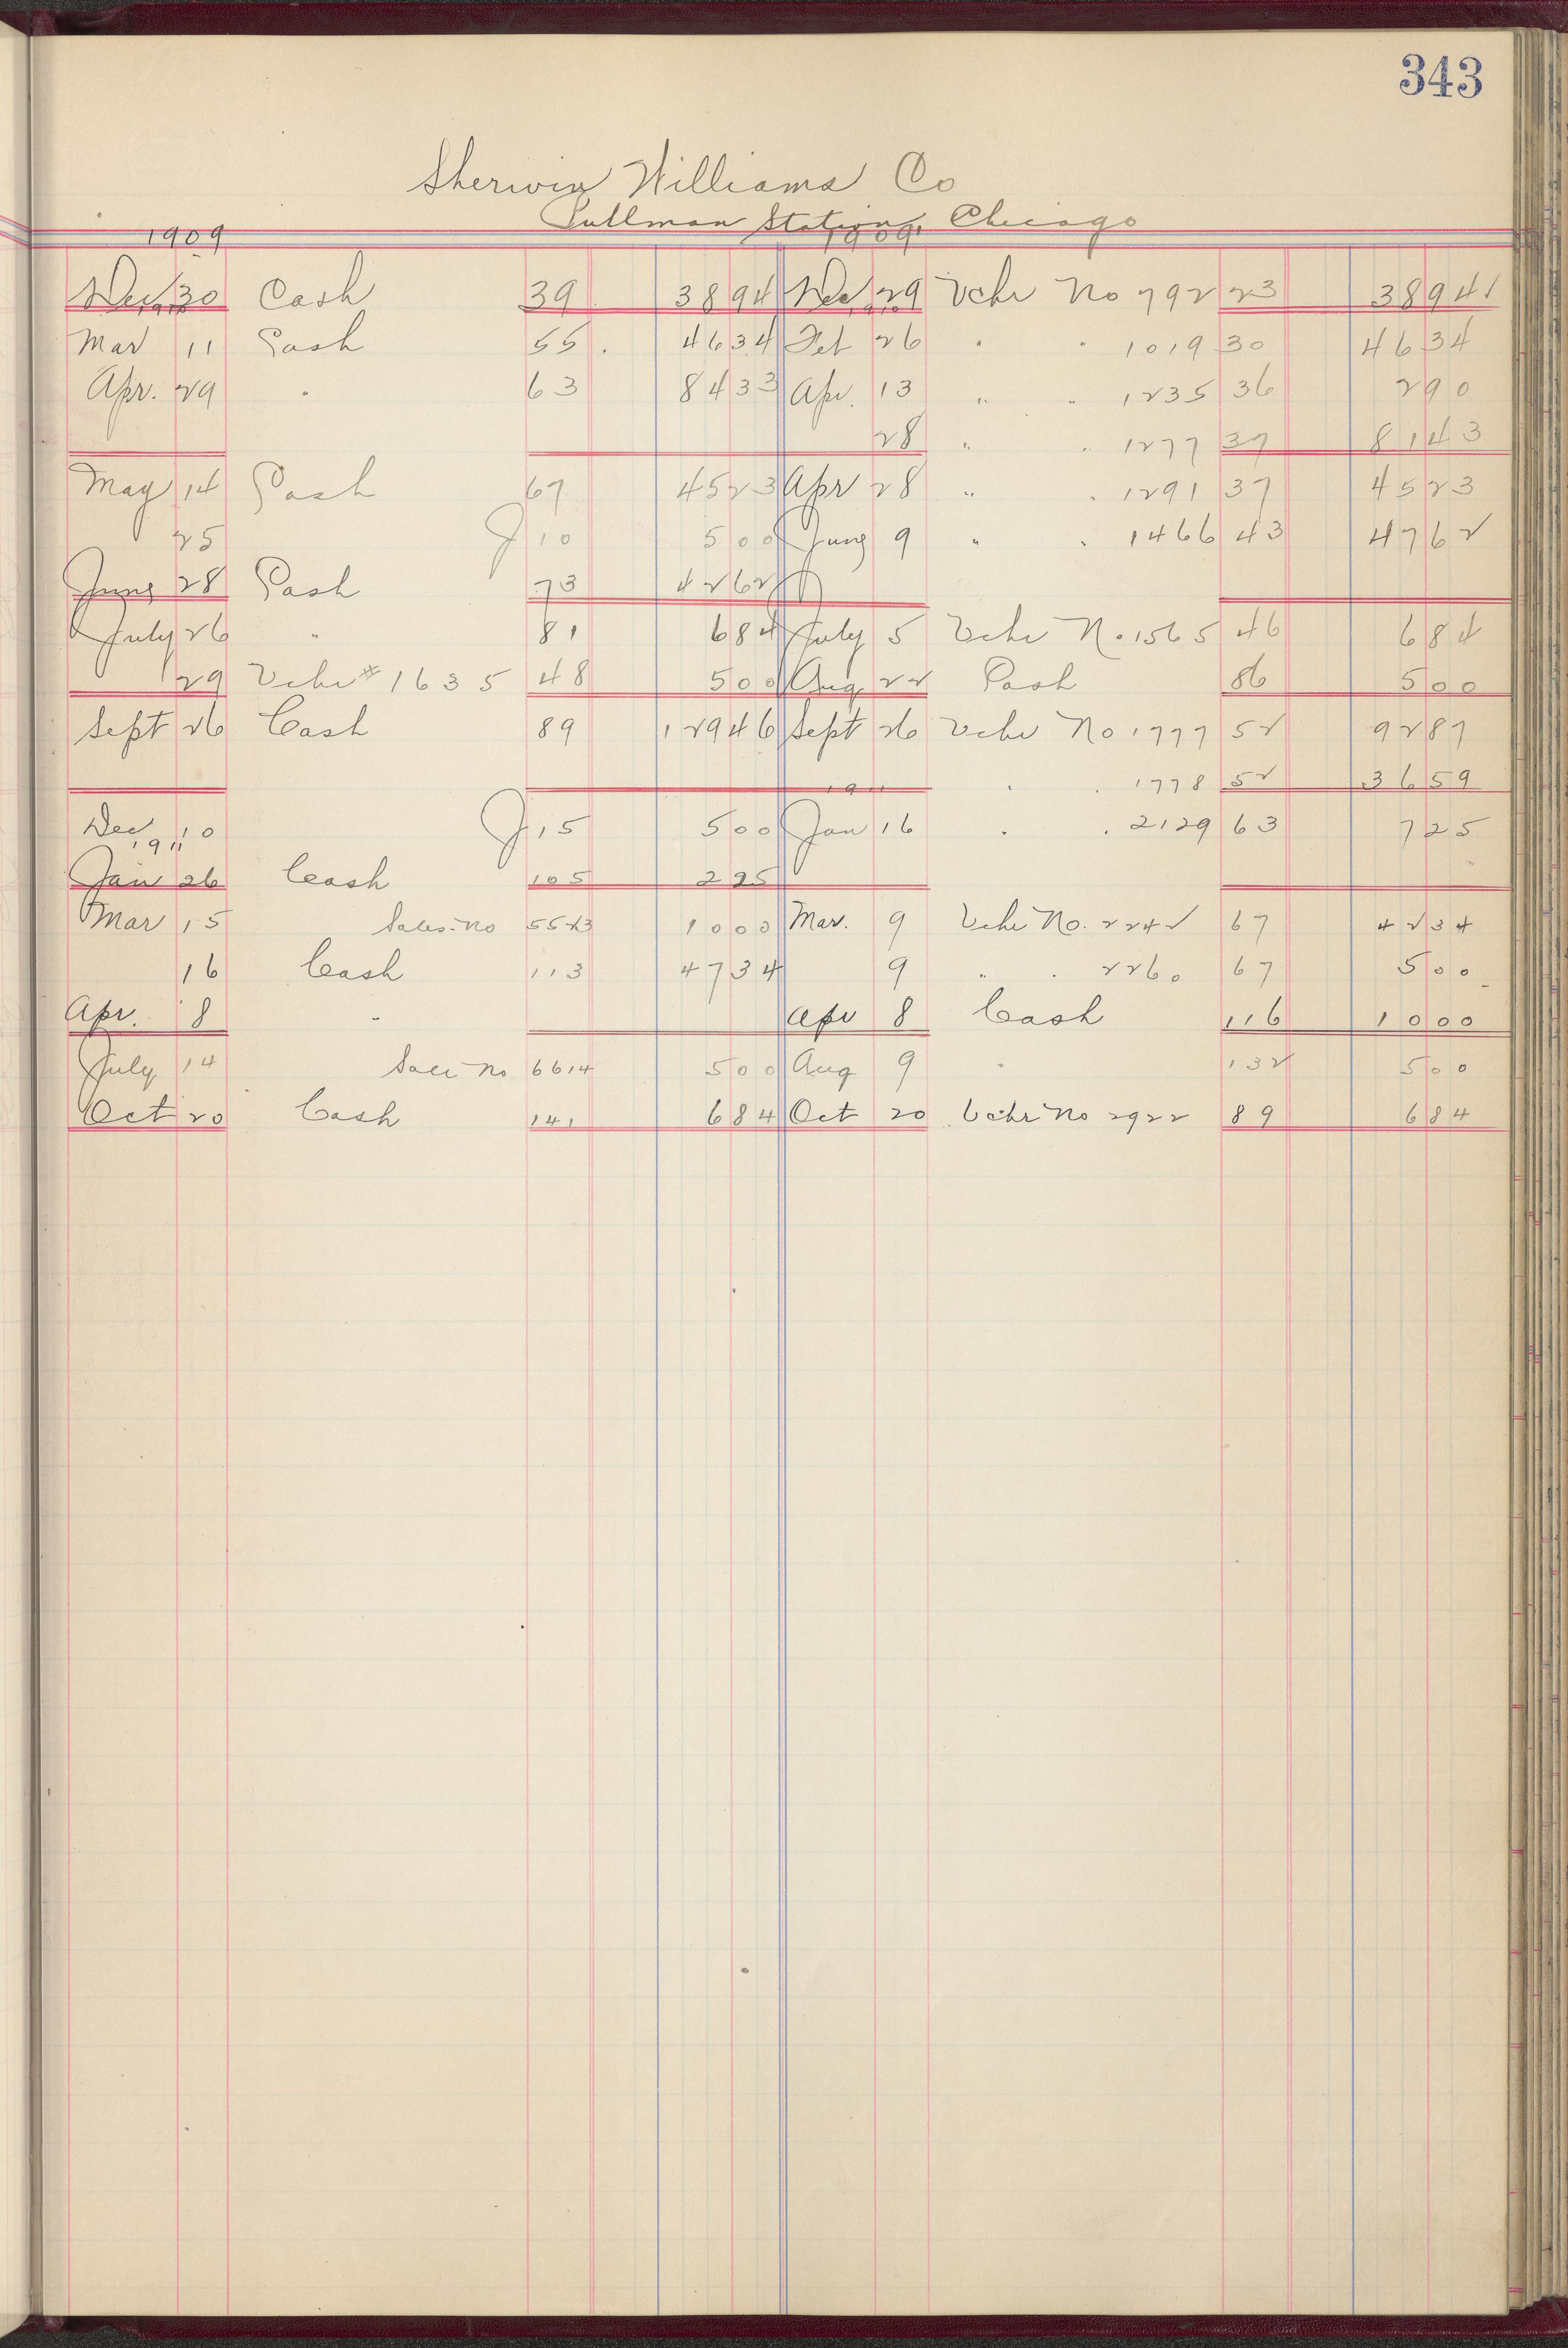 343
Sherwin Williams Co
Pullman Station, Chicago
1909 1909
Dec 30 Cash 39 38 94 Dec 29 Vchr No 792 23 38 94
1910 1910
Mar 11 Cash 55 46 34 Feb 26 " " 1019 30 46 34
Apr. 29 " 63 84 33 Apr. 13 " " 1235 36 2 90
28 " " 1277 37 81 43
May 14 Cash 67 45 23 Apr 28 " " 1291 37 45 23
25 J 10 5 00 June 9 " " 1466 43 47 62
June 28 Cash 73 42 62
July 26 " 81 6 84 July 5 Vchr No. 1565 46 6 84
29 Vchr # 1635 48 5 00 Aug 22 Cash 86 5 00
Sept 26 Cash 89 129 46 Sept 26 Vchr No 1777 52 92 87
" " 1778 52 36 59
1911
Dec 10 J 15 5 00 Jan 16 " " 2129 63 7 25
1911
Jan 26 Cash 105 2 25
Mar 15 Sales No 5523 10 00 Mar. 9 Vchr No. 2242 67 42 34
16 Cash 113 47 34 9 " " 2260 67 5 00
Apr. 8 " Apr 8 Cash 116 10 00
July 14 Sale No 6614 5 00 Aug 9 " 132 5 00
Oct 20 Cash 141 6 84 Oct 20 Vchr No 2922 89 6 84